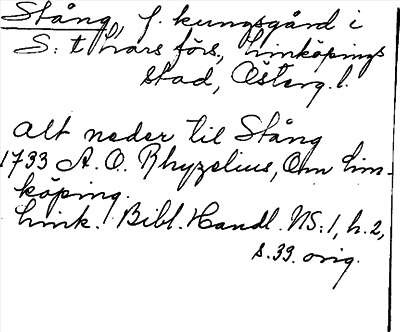 Stång, f. kungsgård i
S:t Lars förs., Linköpings
stad, Österg. l.
alt neder til Stång
1733 A. O. Rhyzelius, Om Lin-
köping.
Link. Bibl. Handl. NS: 1, h. 2,
s. 39. orig.